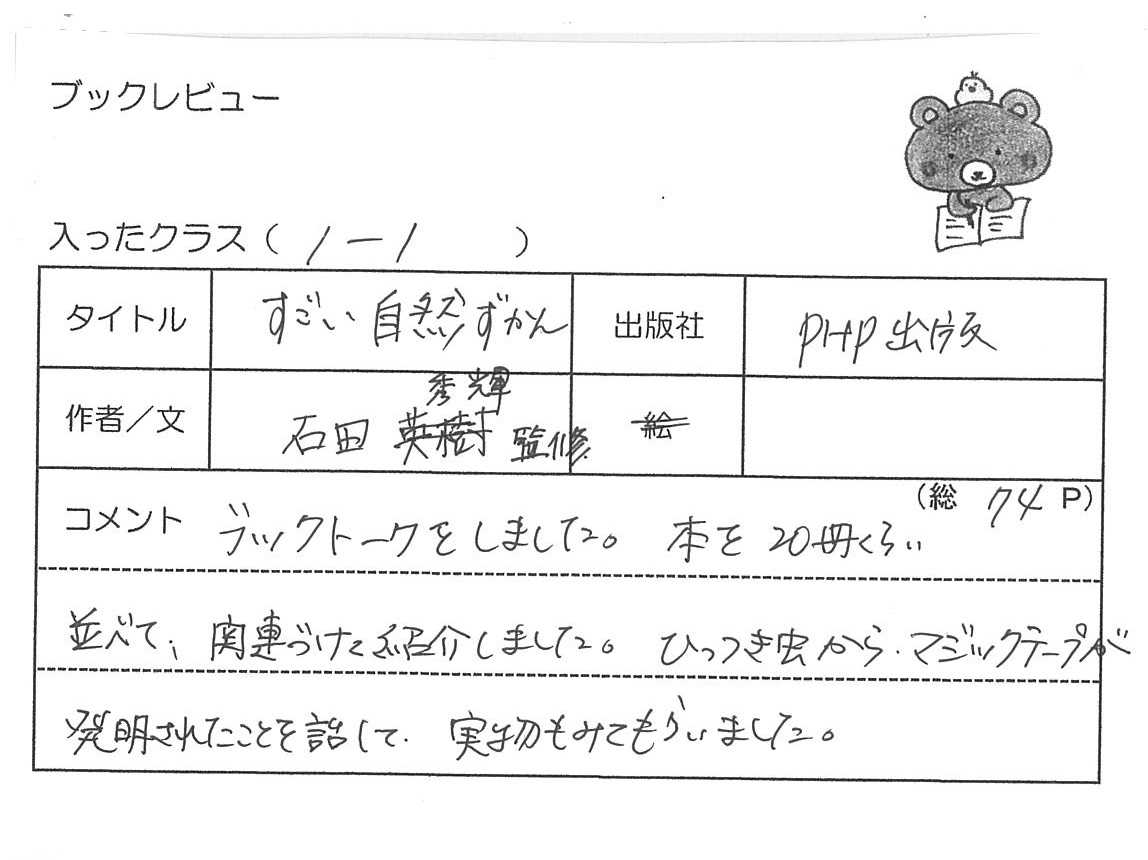 ブックレビュー
入ったクラス（ 1－1 ）
タイトル すごい自然ずかん 出版社 PHP出版
秀輝
作者／文 石田 英樹 監修 絵
（総 74 P）
コメント ブックトークをしました。 本を20冊くらい
並べて、関連づけて紹介しました。 ひっつき虫から、マジックテープが
発明されたことを話して、実物もみてもらいました。